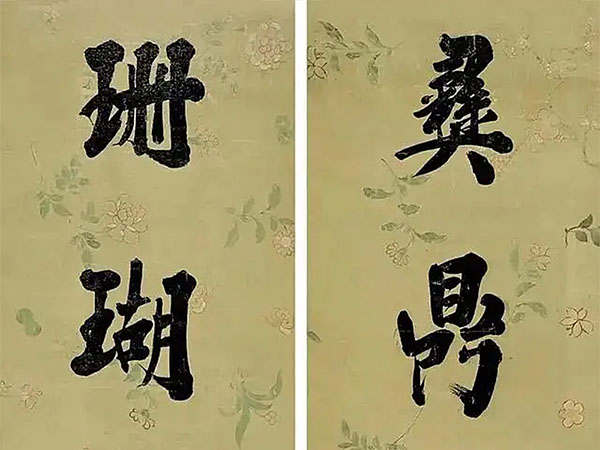 彝鼎
珊瑚